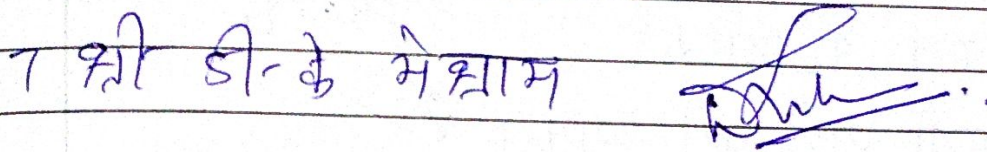 7 श्री डी-के मेश्राम